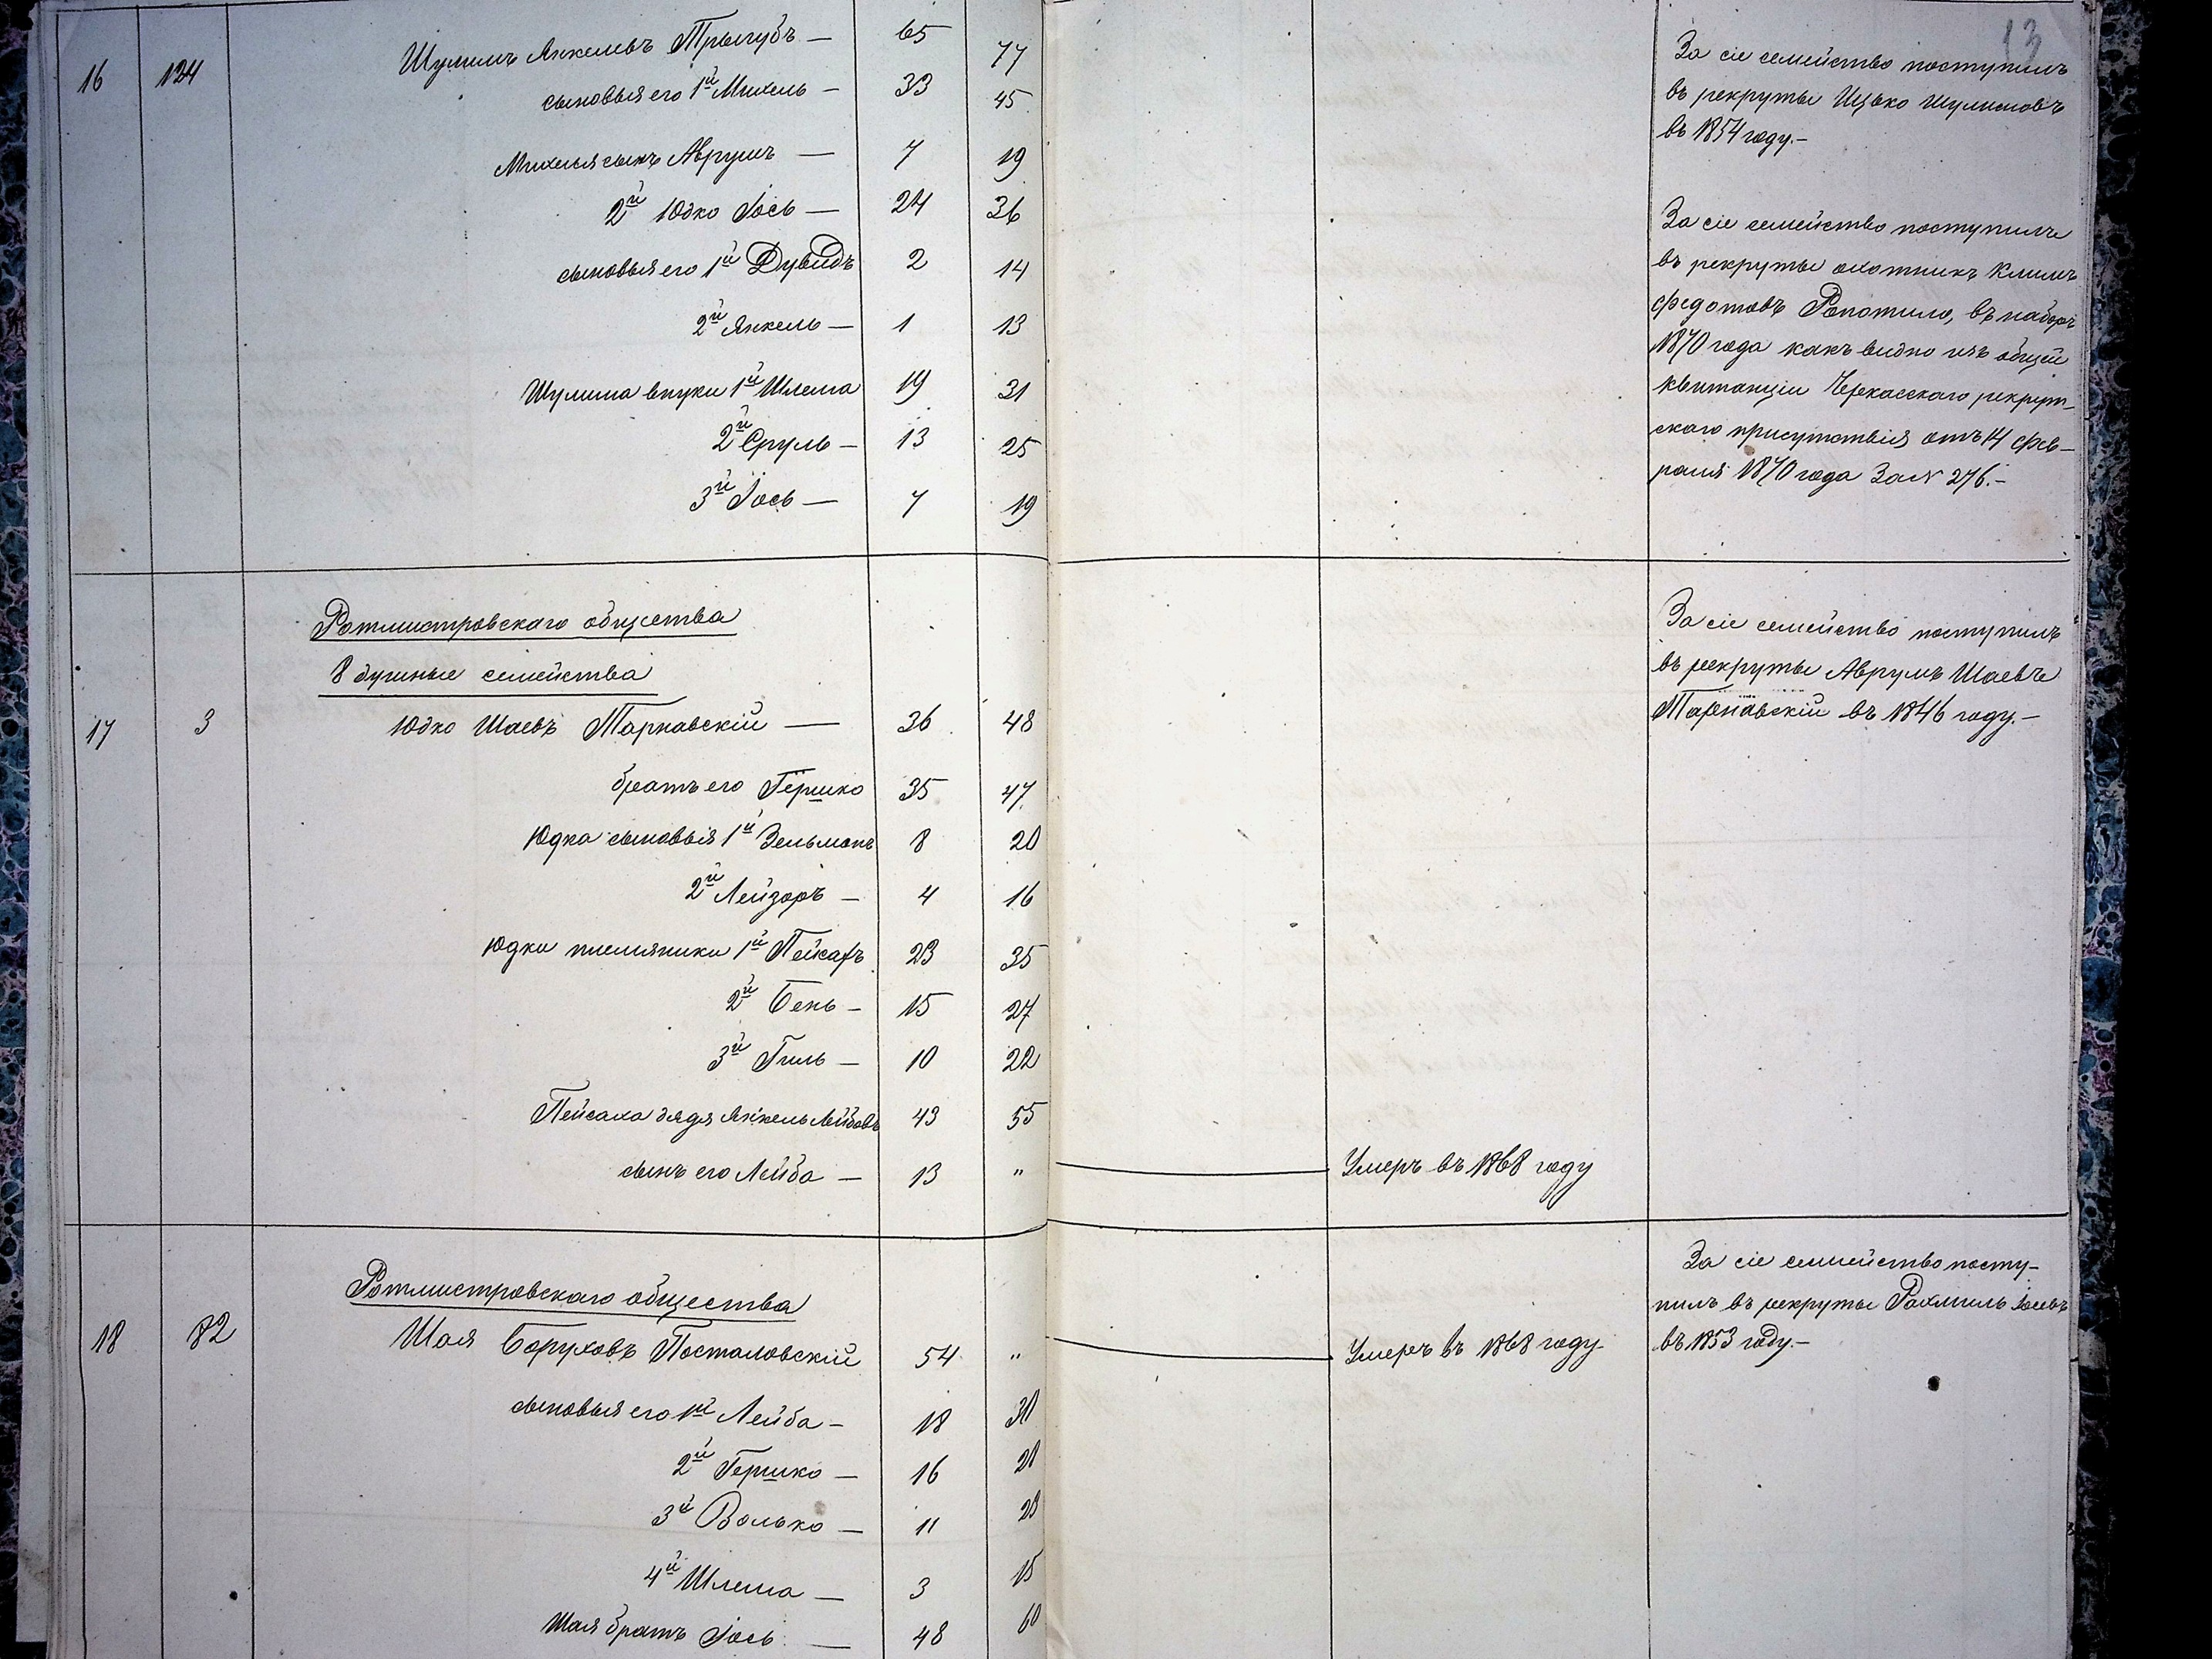 13
16 124 Шулимъ Янкелевъ Трыгубъ — 65 77
сыновья его 1й Михель — 33 45
Михеля сынъ Аврумъ — 7 19
2й Юдко Іось — 24 36
сыновья его 1й Дувидъ 2 14
2й Янкель — 1 13
Шулима внуки 1й Шлема 19 31
2й Сруль — 13 25
3й Іось — 7 19
За сіе семейство поступилъ
въ рекруты Ицько Шулимовъ
въ 1854 году.—
За сіе семейство поступилъ
въ рекруты охотникъ Климъ
Федотовъ Ропотило, въ наборъ
1870 года какъ видно изъ общей
квитанціи Черкасскаго рекрут-
скаго присутствія отъ 14 фев-
раля 1870 года За № 276.—
Ротмистровскаго общества
8 душные семейства
17 3 Юдко Шаевъ Тарнавскій — 36 48
братъ его Гершко 35 47
Юдка сыновья 1й Зельманъ 8 20
2й Лейзоръ — 4 16
Юдки племяники 1й Пейсахъ 23 35
2й Бень — 15 27
3й Гиль — 10 22
Пейсаха дядя Янкель Лейбовъ 43 55
сынъ его Лейба — 13 " Умеръ въ 1868 году
За сіе семейство поступилъ
въ рекруты Аврумъ Шаевъ
Тарнавскій въ 1846 году.—
Ротмистровскаго общества
18 82 Шая Боруховъ Посталовскій 54 " Умеръ въ 1868 году
сыновья его 1й Лейба — 18 30
2й Гершко — 16 28
3й Волько — 11 23
4й Шлема — 3 15
Шая братъ Іось — 48 60
За сіе семейство посту-
пилъ въ рекруты Рахмиль Іосевъ
въ 1853 году.—